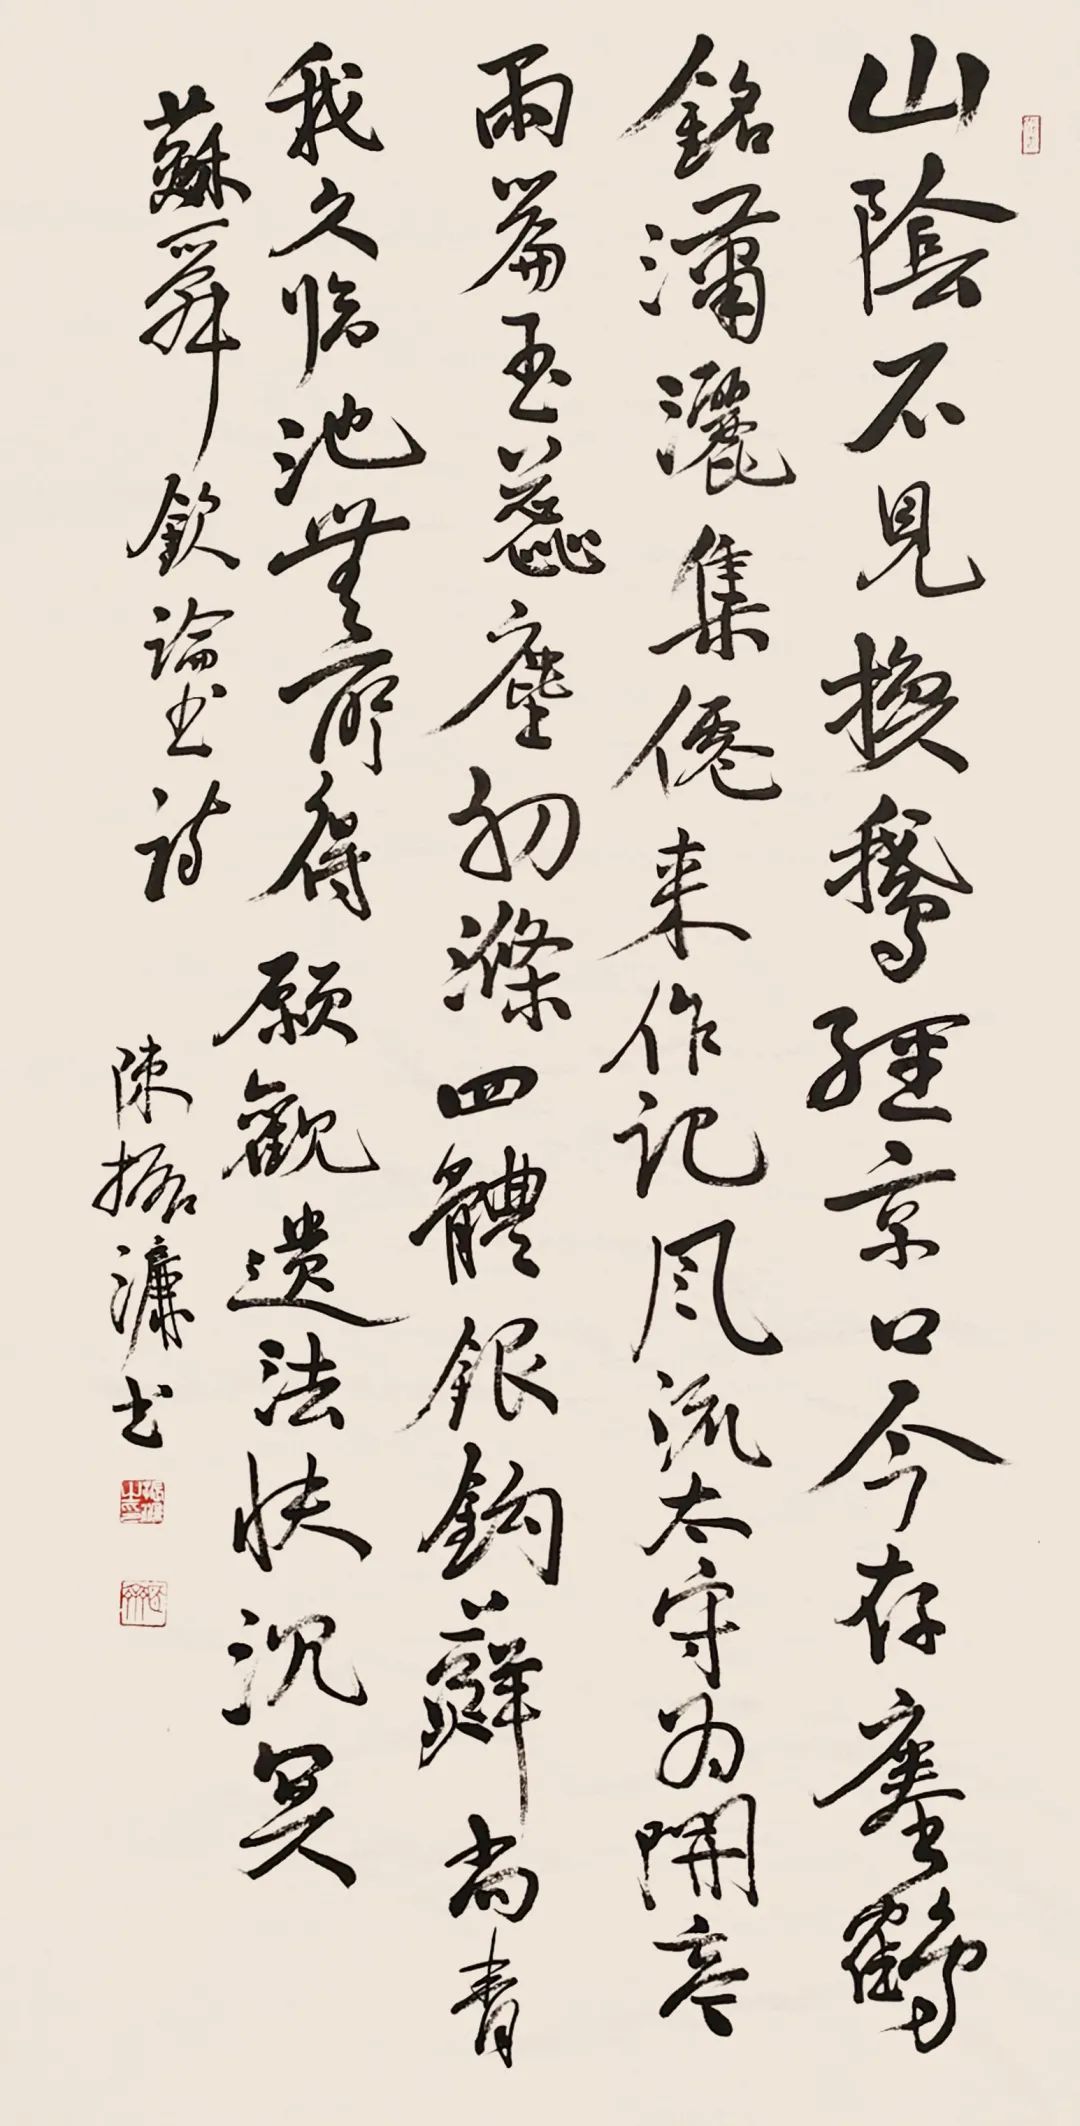 山陰不見換鵝經京口今存瘞鶴
銘瀟灑集僊来作记風流太守为開亭
兩篇玉蕊塵初滌四體銀鈎蘚尚青
我久临池無所得願觀遗法快沉冥
蘇舜欽論书诗
陳振濂书